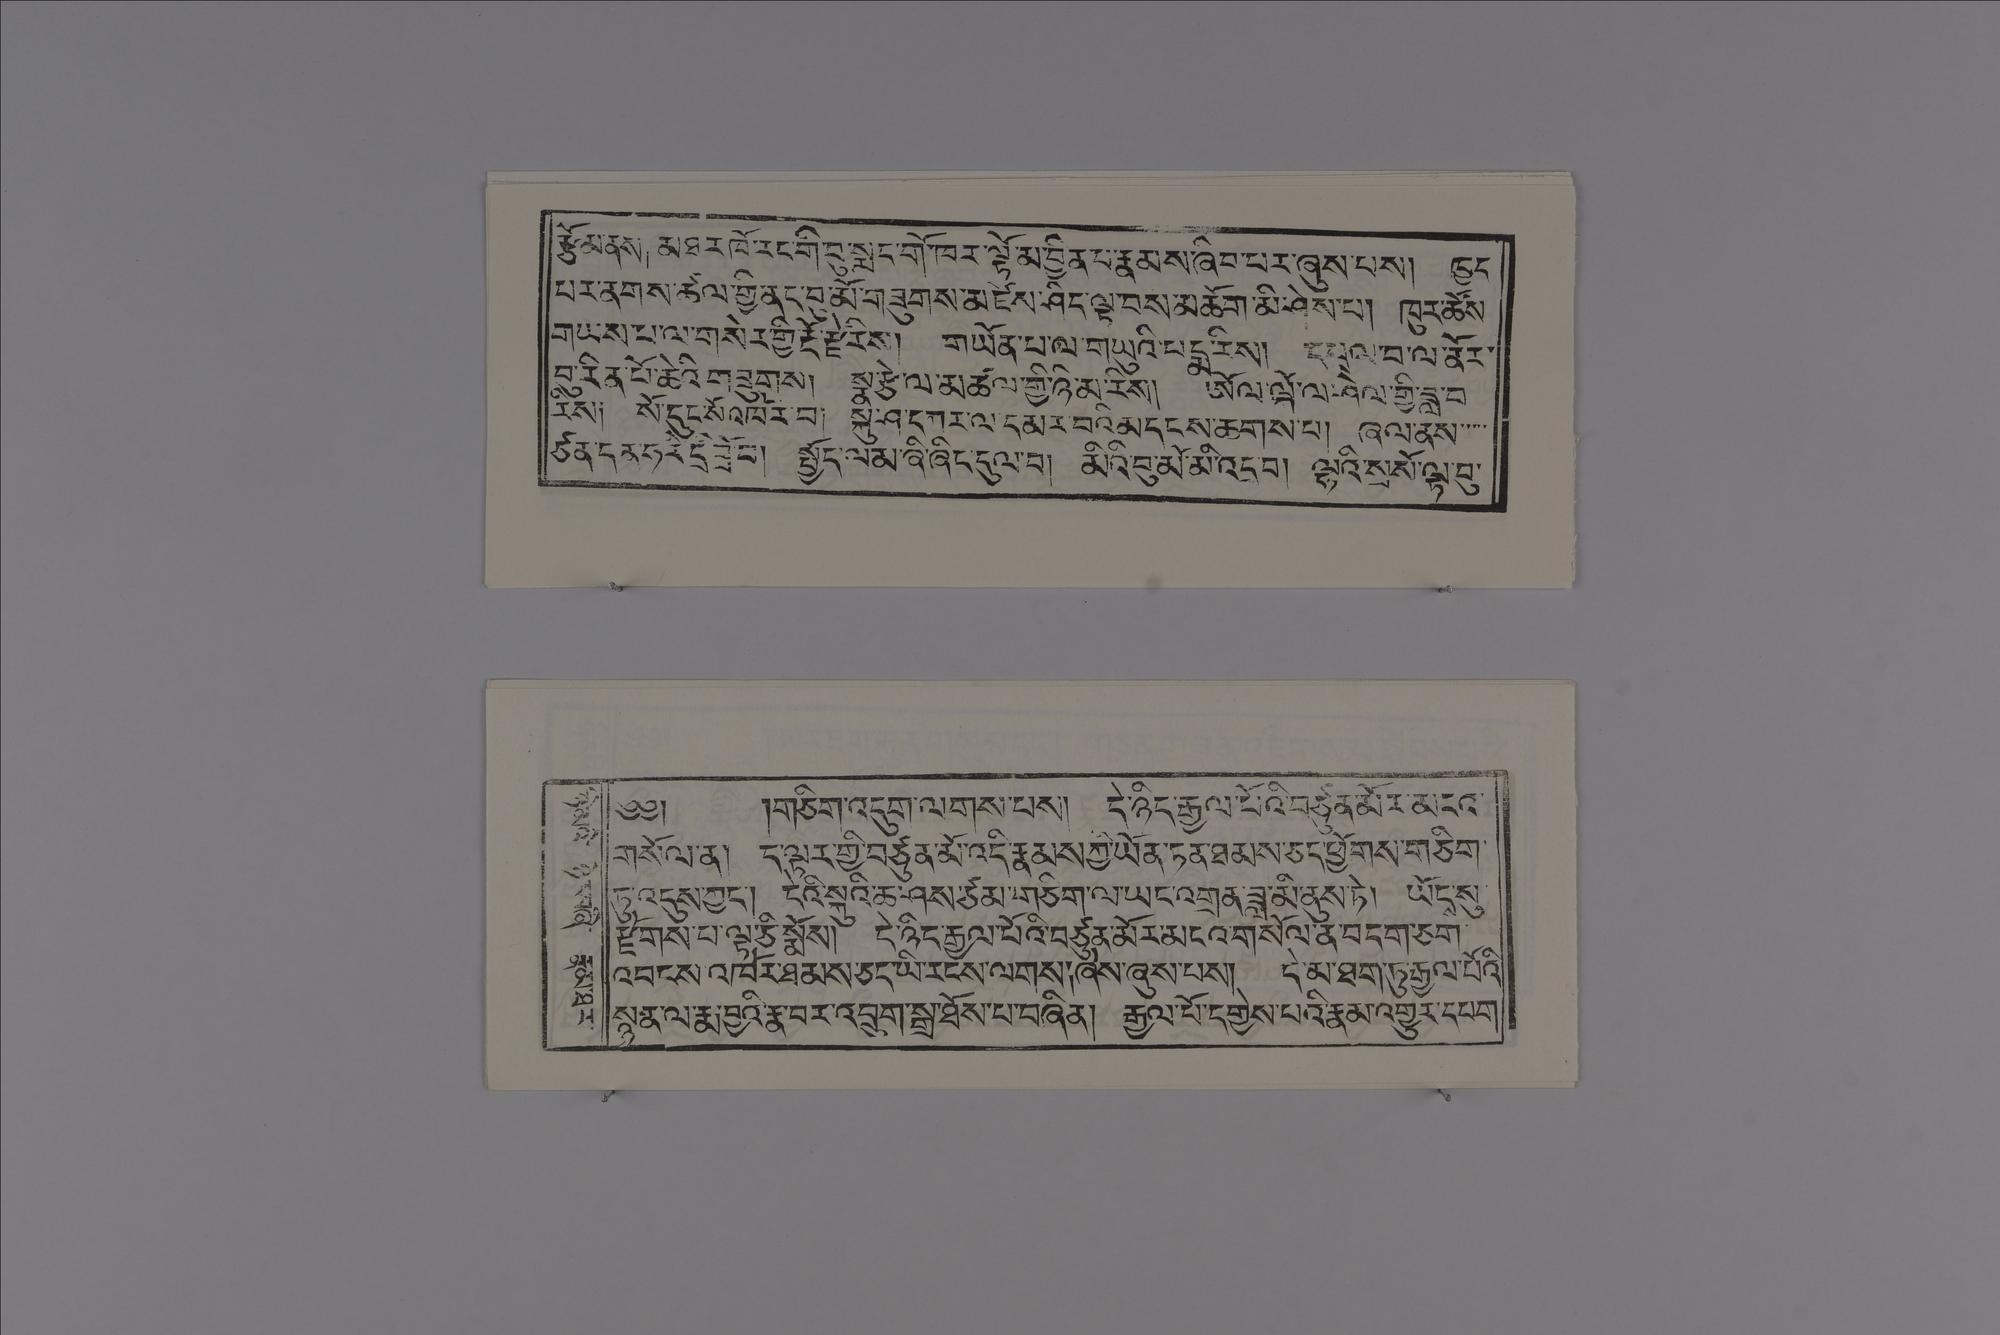 རྩོམ་ནས། མཐར་ཁོ་རང་གི་བུ་སྨད་གོ་ཁར་ལྟོམ་བྱིན་པ་རྣམས་ཞིབ་པར་ཞུས་པས། ཁྱད་
པར་ནགས་ཚལ་གྱི་ནང་བུ་མོ་གཟུགས་མཛེས་ཤིང་ལྟ་བས་མཆོག་མི་ཤེས་པ། ཁུར་ཚོས་
གཡས་པ་ལ་གསེར་གྱི་རྡོ་རྗེ་རིས། གཡོན་པ་ལ་གཡུའི་པདྨ་རིས། དཔྲལ་བ་ལ་ནོར་
བུ་རིན་པོ་ཆེའི་གཟུགས། སྣ་རྩེ་ལ་མཚལ་གྱི་ཉི་མ་རིས། ཨོལ་ལྐོ་ལ་ཤེལ་གྱི་ཟླ་བ་
རིས། སོ་དུང་སོ་འཁོར་བ། སྐུ་ཤ་དཀར་ལ་དམར་བའི་མདངས་ཆགས་པ། ཞལ་ནས་
ཙན་དན་ཧ་རིའི་དྲི་བྲོ་བ། སྤྱོད་ལམ་ཞི་ཞིང་དུལ་བ། མིའི་བུ་མོ་མི་འདྲ་བ། ལྷའི་སྲས་མོ་ལྟ་བུ་
༄༅། །གཅིག་འདུག་ལགས་པས། དེ་ཉིད་རྒྱལ་པོའི་བཙུན་མོར་མངའ་
གསོལ་ན། ད་ལྟར་གྱི་བཙུན་མོ་འདི་རྣམས་ཀྱི་ཡོན་ཏན་ཐམས་ཅད་ཕྱོགས་གཅིག་
ཏུ་འདུས་ཀྱང་། དེའི་སྤུའི་ཆ་ཤས་ཙམ་གཅིག་ལ་ཡང་འགྲན་ཟླ་མི་ནུས་ཏེ། ཡོངས་སུ་
རྫོགས་པ་ལྟ་ཅི་སྨོས། དེ་ཉིད་རྒྱལ་པོའི་བཙུན་མོར་མངའ་གསོལ་ན་བདག་ཅག་
འབངས་འཁོར་ཐམས་ཅད་ཡི་རངས་ལགས། ཞེས་ཞུས་པས། དེ་མ་ཐག་ཏུ་རྒྱལ་པོའི་
སྙན་ལ་རྨ་བྱའི་རྣ་བར་འབྲུག་སྒྲ་ཐོས་པ་བཞིན། རྒྱལ་པོ་དགྱེས་པའི་རྣམ་འགྱུར་དཔག་